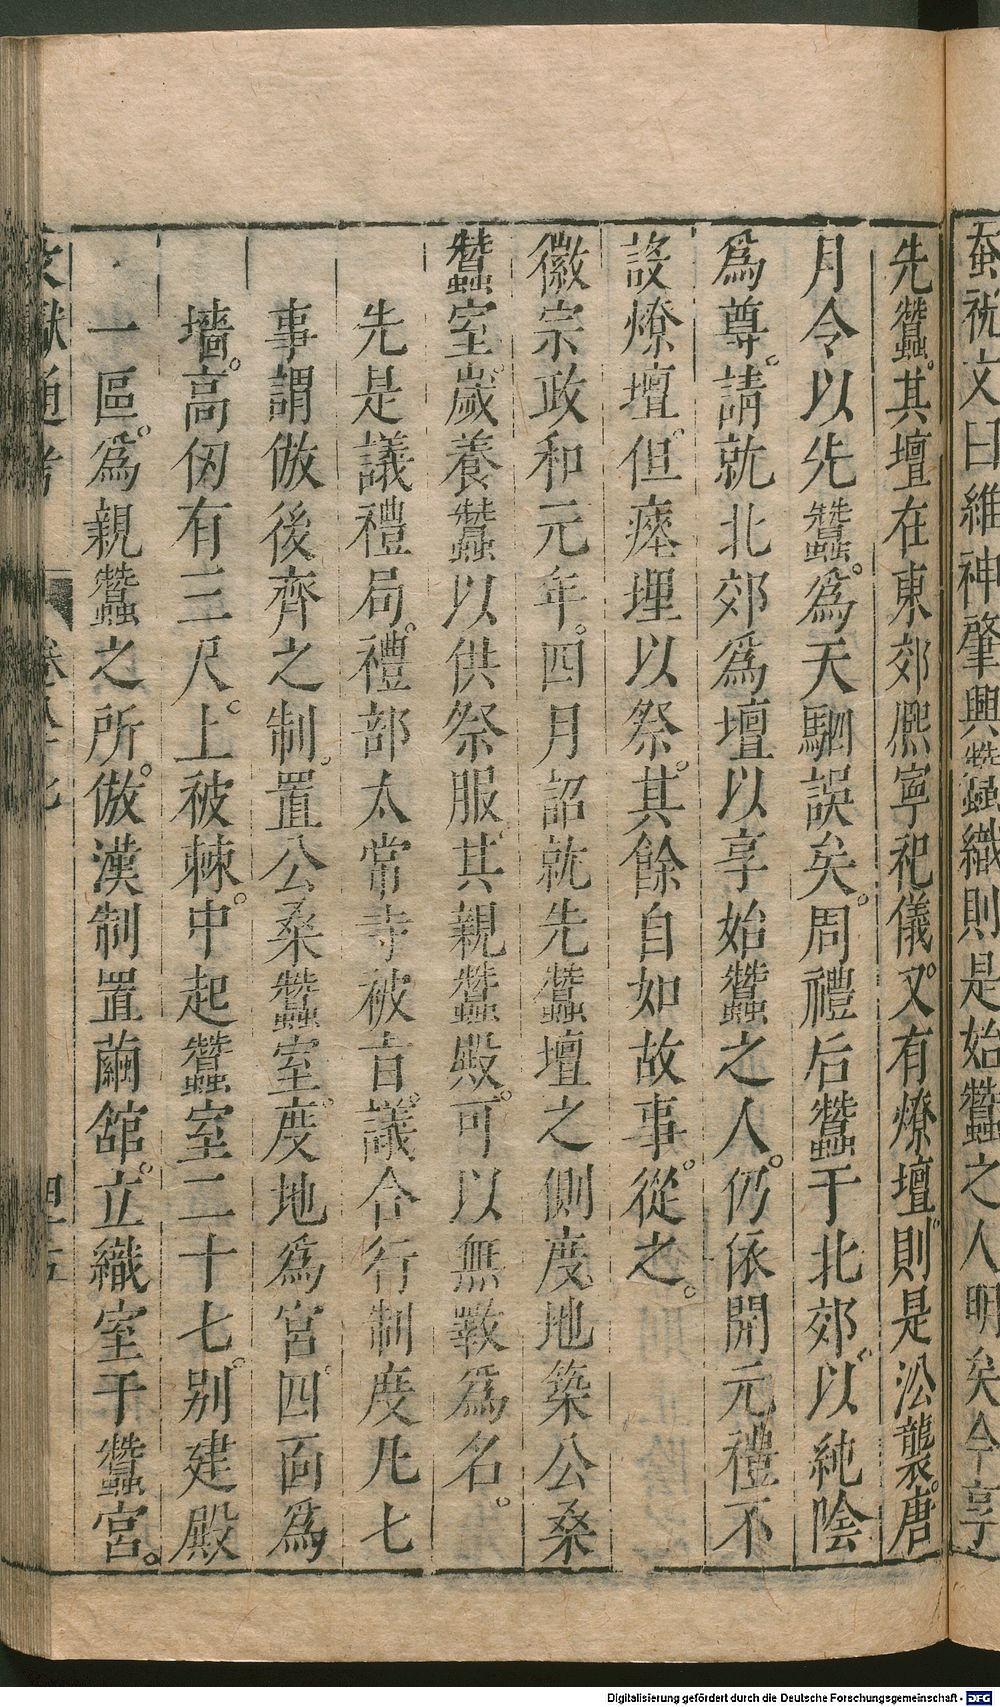 蚕祝文曰維神肇興蠶織則是始蠶之人明矣今享
先蠶。其壇在東郊熈寧祀儀又有燎壇則是㳂襲。唐
月令以先蠶。為天駟誤矣。周禮后蠶于北郊以純陰
為尊。請就北郊為壇以享始蠶之人。仍依開元禮不
設燎壇。但瘞埋以祭。其餘自如故事。從之。
徽宗政和元年。四月詔就先蠶壇之側度地築公桑
蠶室。歲養蠶以供祭服。其親蠶殿。可以無斁為名。
先是議禮局。禮部太常寺被旨。議合行制度凡七
事謂倣後齊之制。置公桑蠶室。度地為宮。四面為
墻。高仞有三尺。上被棘。中起蠶室二十七。别建殿
一區。為親蠶之所。倣漢制置繭舘。立織室于蠶宮。
文獻通考